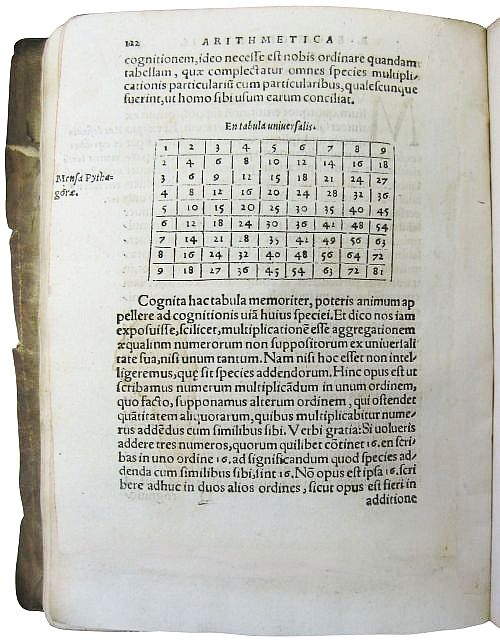 122 ARITHMETICA
cognitionem, ideo necesse est nobis ordinare quandam
tabellam, quæ complectatur omnes species multipli-
cationis particulariũ cum particularibus, qualescunque
fuerint, ut homo sibi usum earum conciliat.
En tabula uniuersalis.
Mensa Pytha-
goræ.
1 2 3 4 5 6 7 8 9
2 4 6 8 10 12 14 16 18
3 6 9 12 15 18 21 24 27
4 8 12 16 20 24 28 32 36
5 10 15 20 25 30 35 40 45
6 12 18 24 30 36 42 48 54
7 14 21 28 35 42 49 56 63
8 16 24 32 40 48 56 64 72
9 18 27 36 45 54 63 72 81
Cognita hac tabula memoriter, poteris animum ap
pellere ad cognitionis uiã huius speciei. Et dico nos iam
exposuisse, scilicet, multiplicationẽ esse aggregationem
æqualium numerorum non suppositorum ex uniuersali
tate sua, nisi unum tantum. Nam nisi hoc esset non intel-
ligeremus, quę sit species addendorum. Hinc opus est ut
scribamus numerum multiplicãdum in unum ordinem,
quo facto, supponamus alterum ordinem, qui ostendet
quãtitatem aliquotarum, quibus multiplicabitur nume-
rus addẽdus cum similibus sibi. Verbi gratia: Si uolueris
addere tres numeros, quorum quilibet cõtinet 16. en scri
bas in uno ordine 16. ad significandum quod species ad-
denda cum similibus sibi, sint 16. Nõ opus est ipsa 16. scri
bere adhuc in duos alios ordines, sicut opus est fieri in
additione